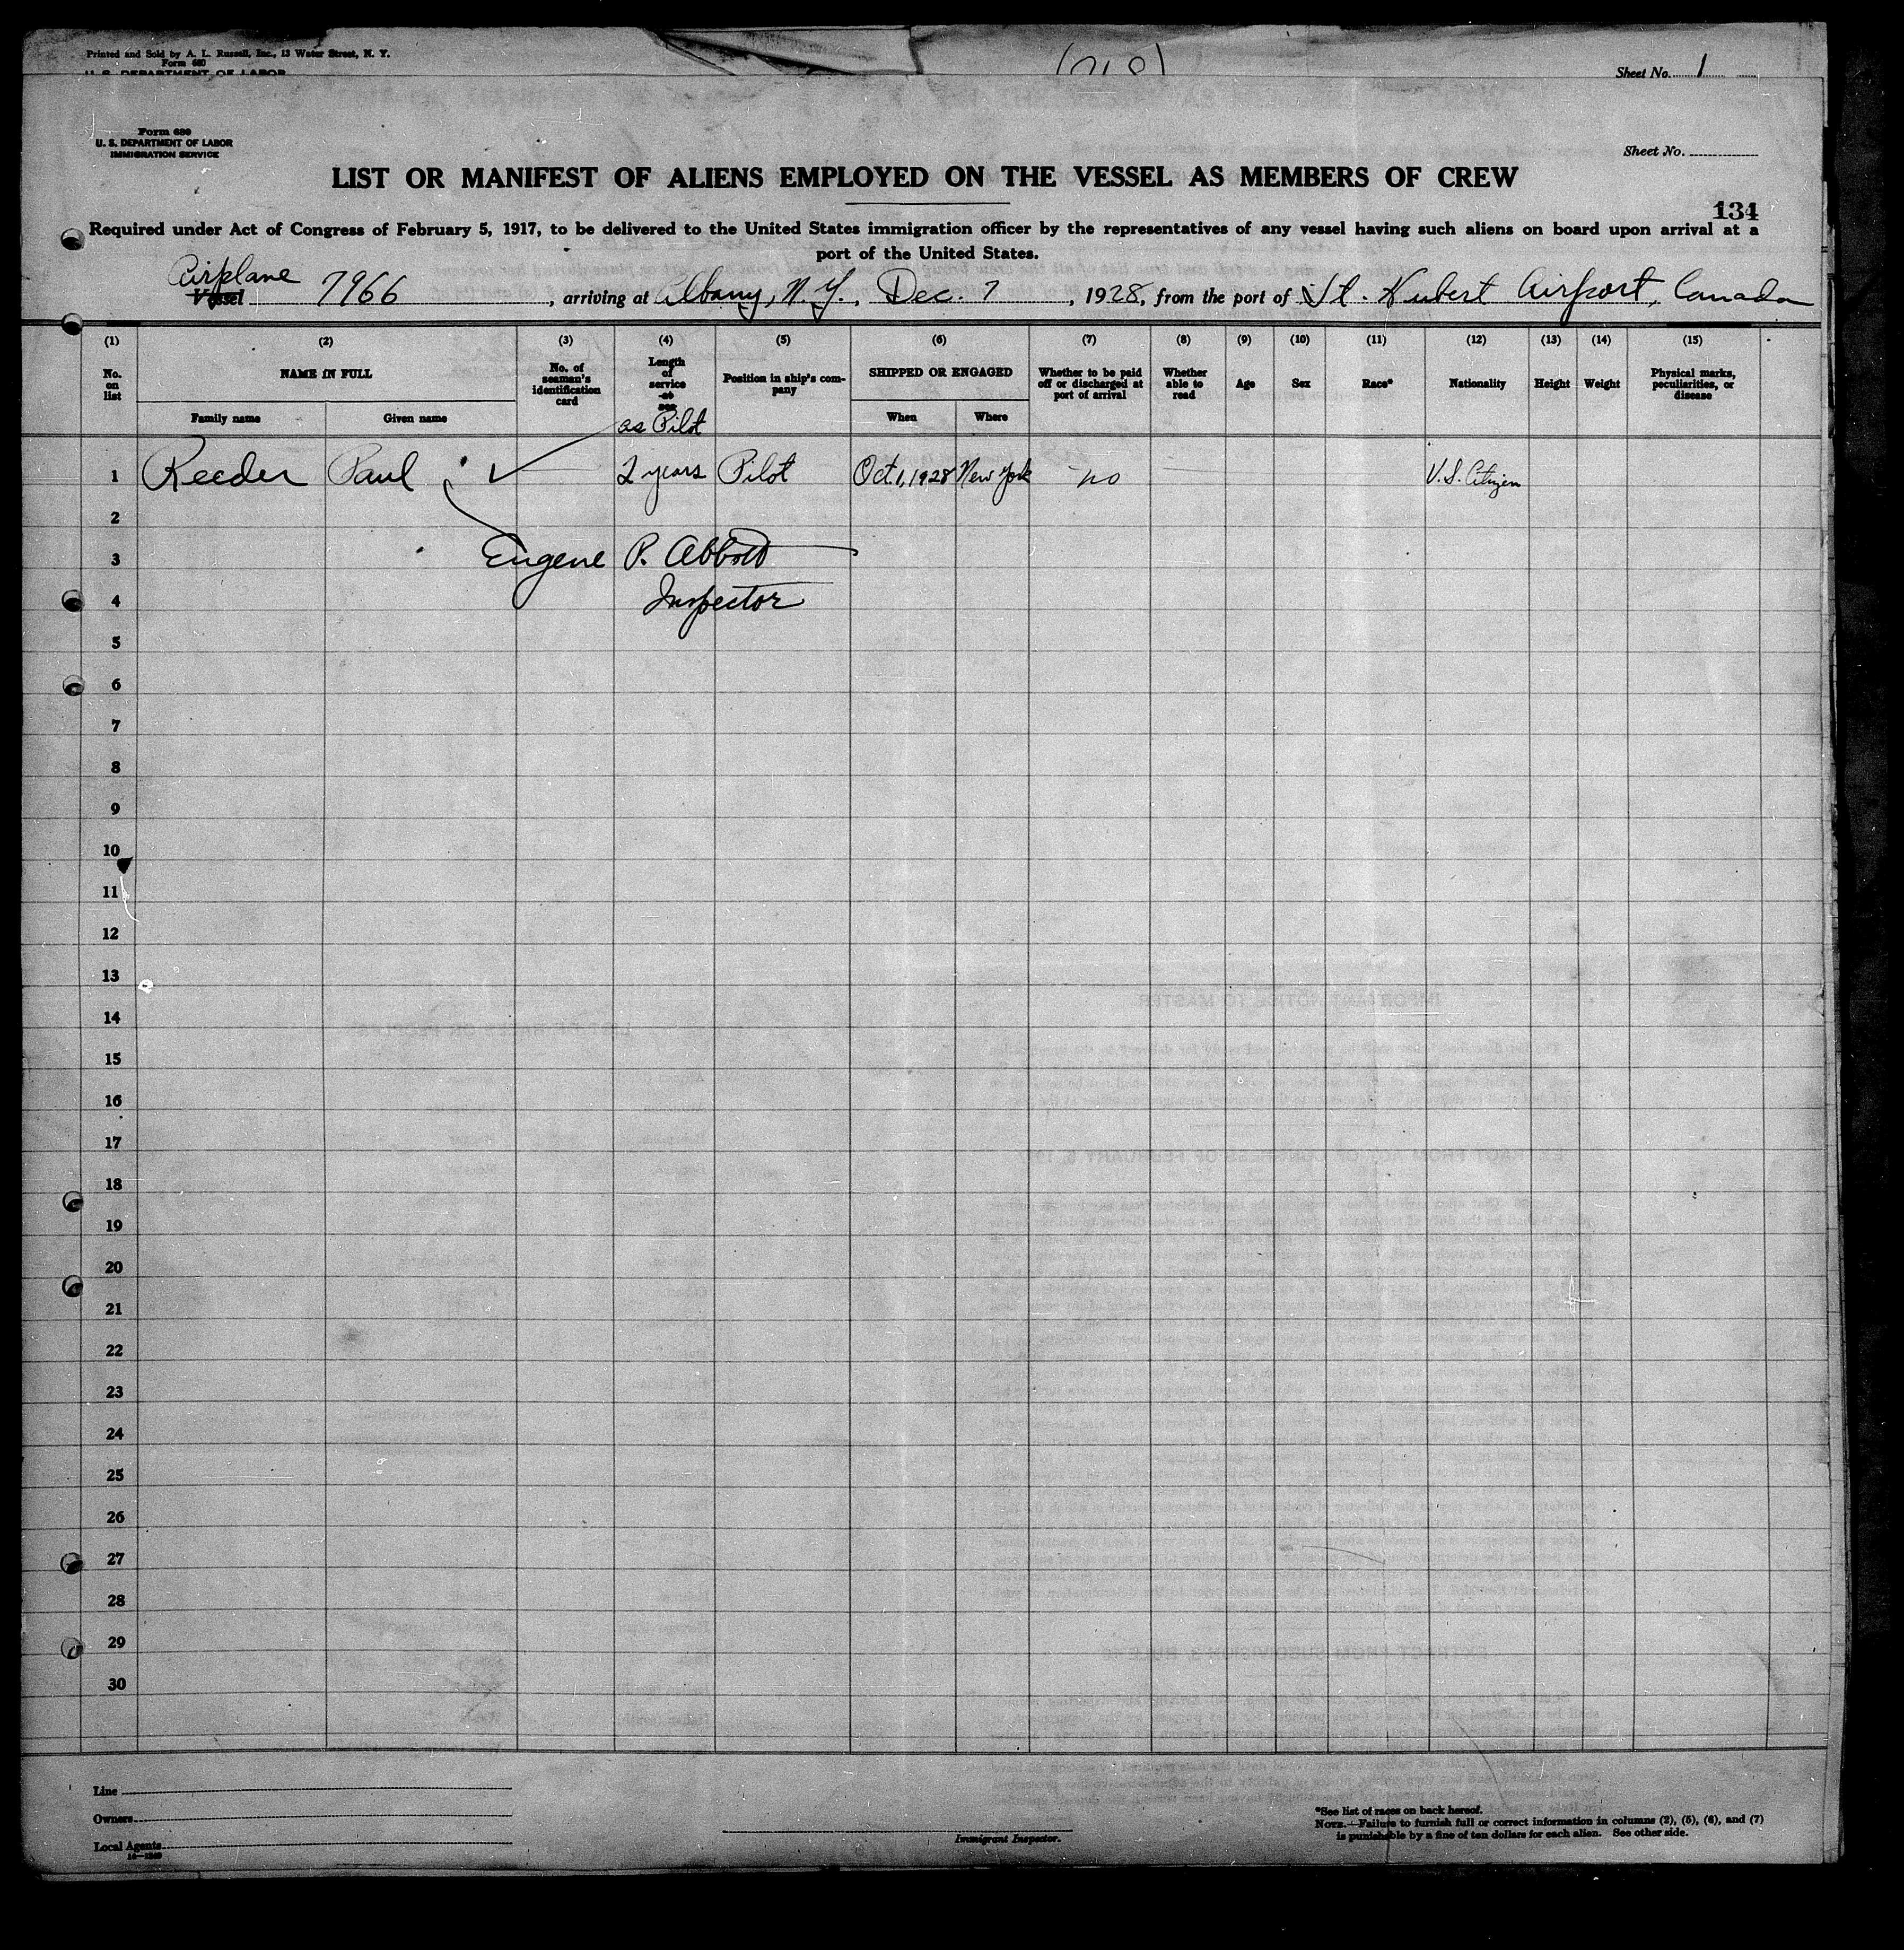 Printed and Sold by A. L. Russell, Inc., 13 Water Street, N. Y.
Form 680
U. S. DEPARTMENT OF LABOR
Sheet No. 1
Form 680
U. S. DEPARTMENT OF LABOR
IMMIGRATION SERVICE
Sheet No.
LIST OR MANIFEST OF ALIENS EMPLOYED ON THE VESSEL AS MEMBERS OF CREW
134
Required under Act of Congress of February 5, 1917, to be delivered to the United States immigration officer by the representatives of any vessel having such aliens on board upon arrival at a
port of the United States.
Airplane
Vessel 7966, arriving at Albany, N.Y., Dec. 7, 1928, from the port of St. Hubert Airport, Canada
(1) (2) (3) (4) (5) (6) (7) (8) (9) (10) (11) (12) (13) (14) (15)
No. on list
NAME IN FULL
Family name
Given name
No. of seaman's identification card
Length of service at sea
as Pilot
Position in ship's company
SHIPPED OR ENGAGED
When
Where
Whether to be paid off or discharged at port of arrival
Whether able to read
Age
Sex
Race*
Nationality
Height
Weight
Physical marks, peculiarities, or disease
1 Reeder Paul 2 years Pilot Oct. 1, 1928 New York no U.S. Citizen
2
3 Eugene P. Abbott
4 Inspector
5
6
7
8
9
10
11
12
13
14
15
16
17
18
19
20
21
22
23
24
25
26
27
28
29
30
Line
Owners
Local Agents
Immigrant Inspector.
*See list of races on back hereof.
NOTE.—Failure to furnish full or correct information in columns (2), (5), (6), and (7)
is punishable by a fine of ten dollars for each alien. See other side.